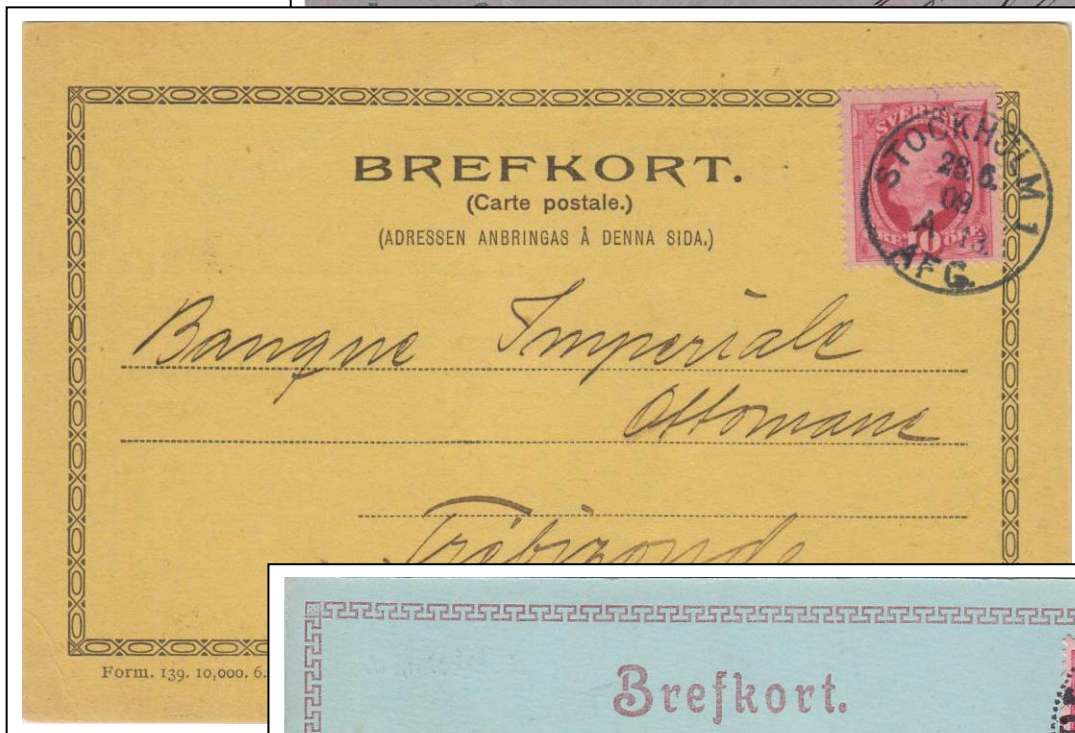 BREFKORT.
(Carte postale.)
(ADRESSEN ANBRINGAS Å DENNA SIDA.)
SVERIGE
10
ÖRE
STOCKHOLM 1
28. 6.
09
A 13.
AFG.
Banque Imperiale
Ottomane
Trébizonde
Form. 139. 10,000. 6.
Brefkort.